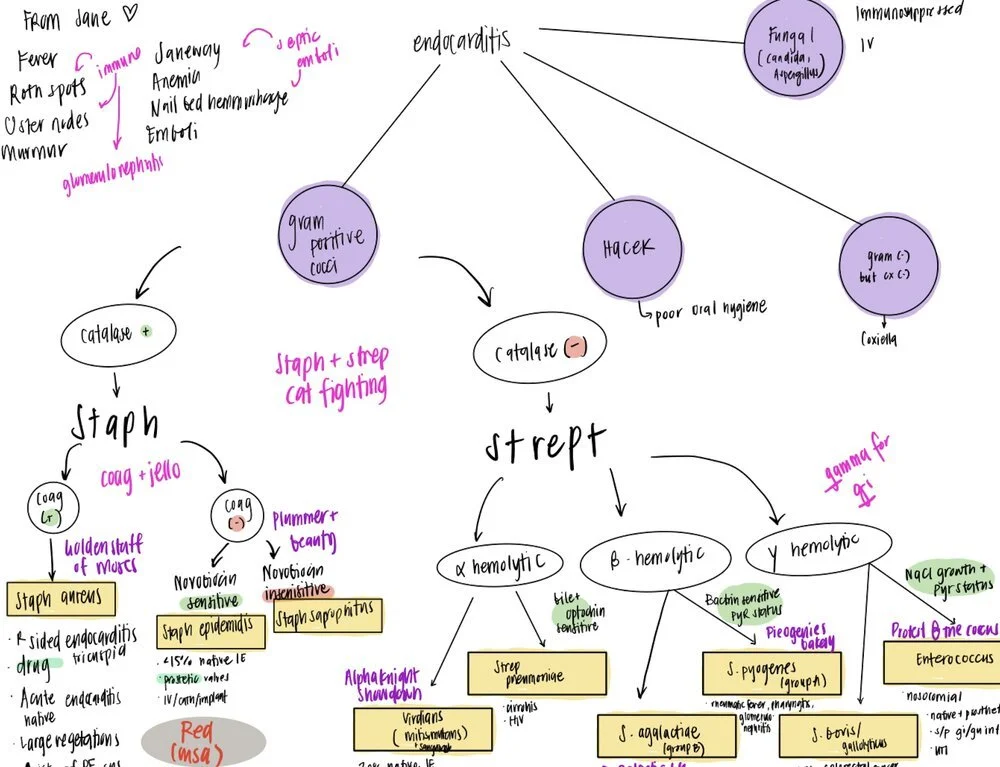 From Jane ♡
Fever
Roth spots
Oster nodes
murmur
immune
glomerulonephritis
Janeway
Anemia
Nail bed hemorrhage
Emboli
septic
emboli
endocarditis
Fungal
(candida,
Aspergillus)
Immunosuppressed
IV
gram
positive
cocci
HACEK
poor oral hygiene
gram (-)
but cx (-)
Coxiella
catalase +
catalase (-)
Staph + strep
cat fighting
Staph
strept
coag + jello
coag
(+)
coag
(-)
Golden staff
of moses
Plummer +
beauty
Staph aureus
Novobiocin
sensitive
Novobiocin
insensitive
Staph epidermidis
Staph saprophitus
• R sided endocarditis
tricuspid
• drug
• Acute endocarditis
native
• Large vegetations
• <15% native IE
• Prostetic valves
• IV/
Red
(msa)
gamma for
gi
α hemolytic
β-hemolytic
γ hemolytic
bile +
optochin
sensitive
Bactrin sensitive
PYR status
NaCl growth +
Pyr status
Alpha Knight
Showdown
Viridians
(mitis/mutans)
+ sanguinis
Strep
pneumoniae
• cirrohis
• HIV
Pieogenies
bakery
S. pyogenes
(group A)
• rheumatic fever, pharyngitis,
glomerulo
nephritis
S. agalactiae
(group B)
S. bovis/
gallolyticus
Protect θ the coccus
Enterococcus
• nosocomial
• native + prosthet
• s/p gi/gu int
• UTI